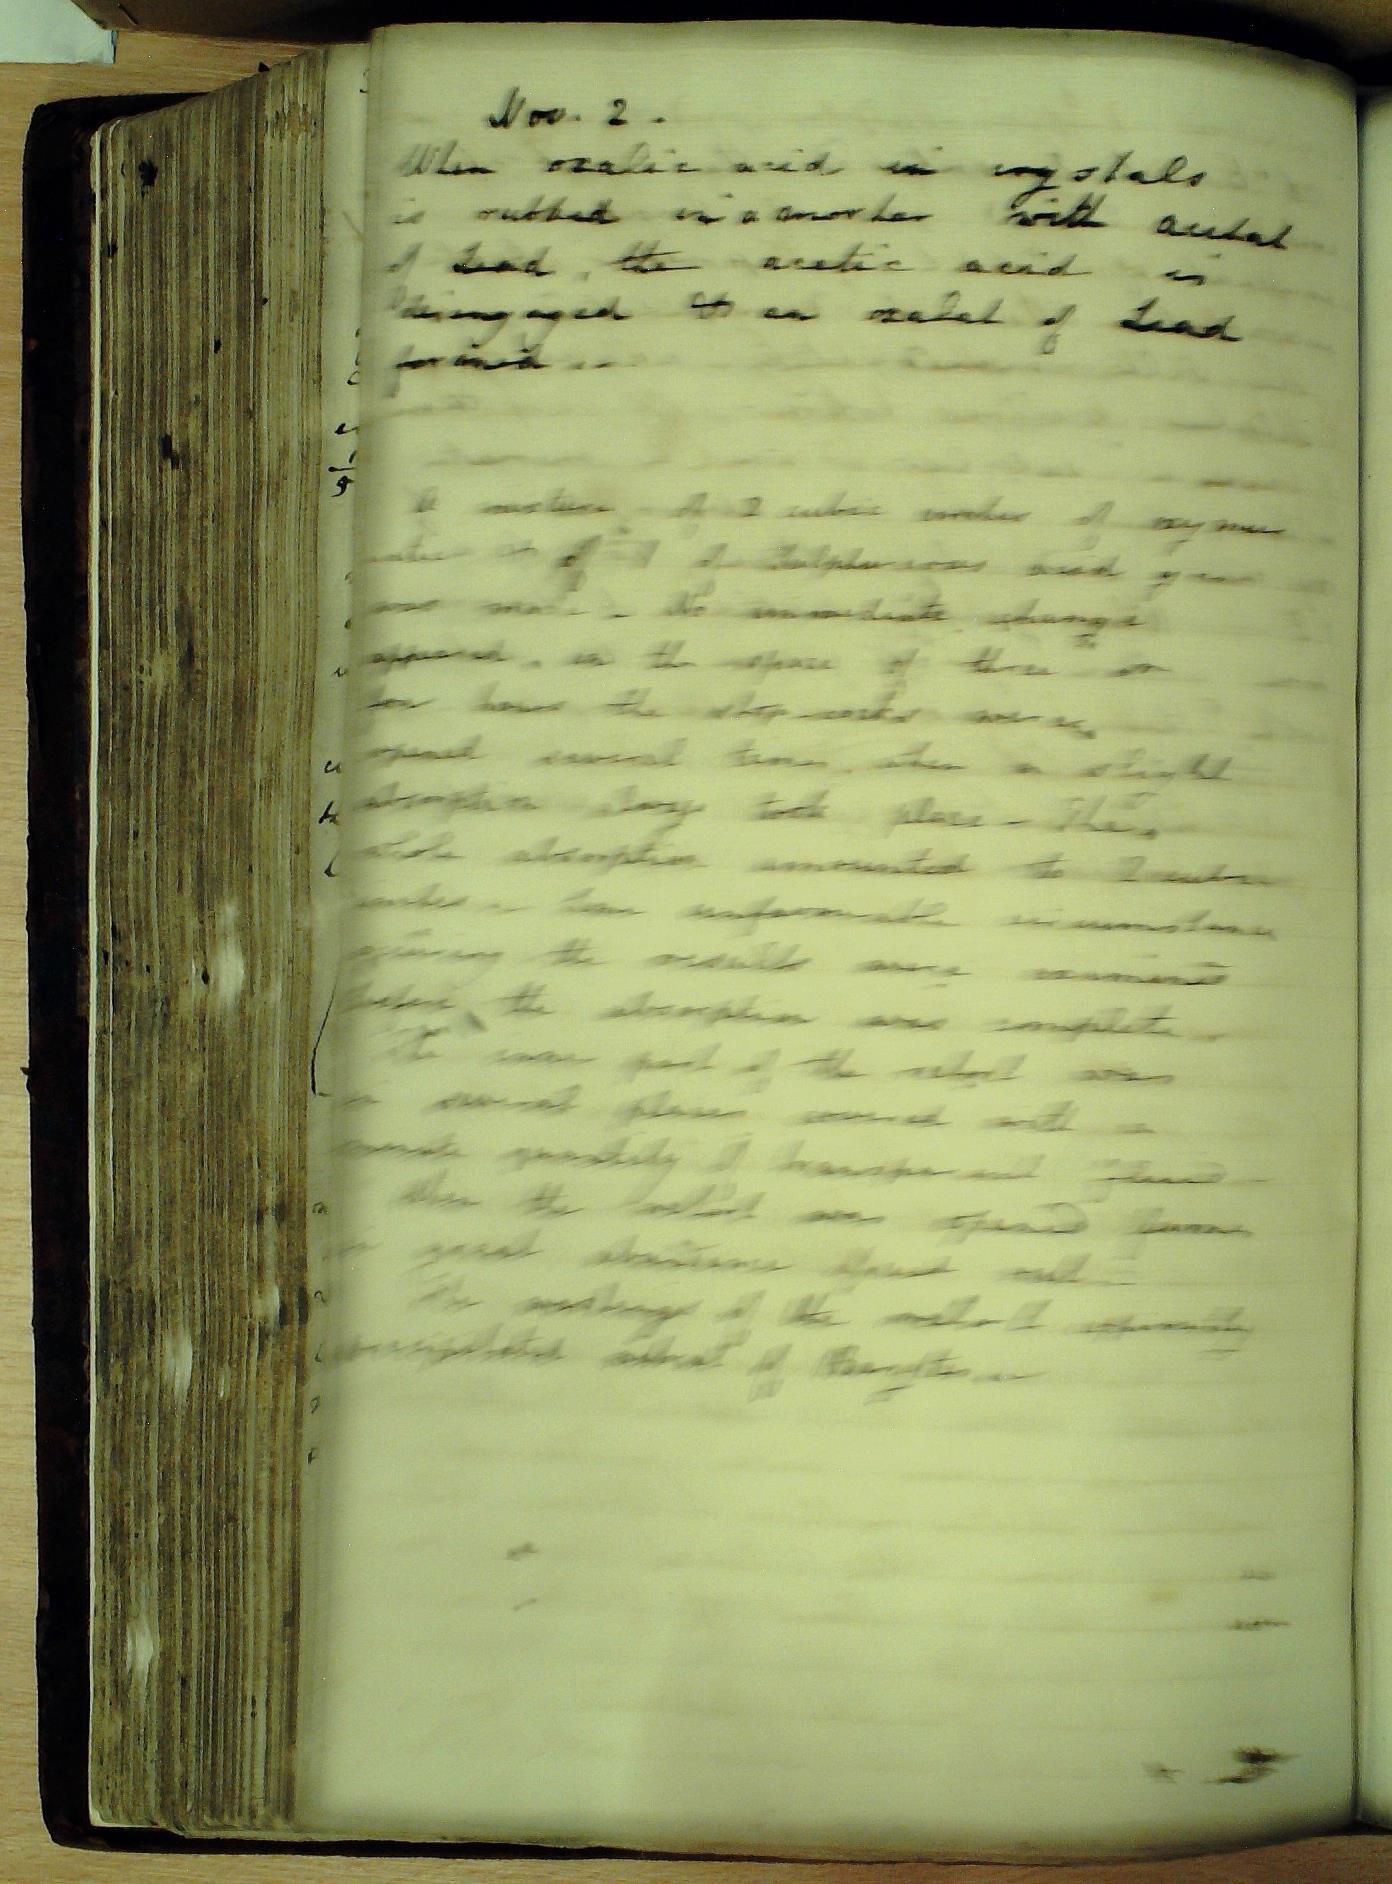 Nov. 2.
When oxalic acid in crystals
is rubbed in a mortar with acetat
of Lead, the acetic acid is
disengaged & an oxalat of Lead
formed
A mixture of 2 cubic inches of oxymu
of Sulphureous acid gas
was made - No immediate change
appeared, in the space of three or
four hours the stop-cocks were
opened several times, when a slight
absorption always took place - The
whole absorption amounted to 2 cubic
inches - Some unfavourable circumstance
the results were examined
before the absorption was complete
The inner part of the retort was
in several places covered with a
minute quantity of transparent fluid
When the retort was opened fumes
in great abundance passed out
The washings of the retort
precipitated of Barytes